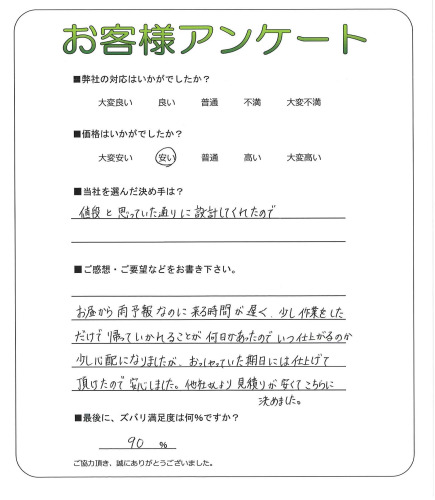 お客様アンケート
■弊社の対応はいかがでしたか？
大変良い 良い 普通 不満 大変不満
■価格はいかがでしたか？
大変安い 安い 普通 高い 大変高い
■当社を選んだ決め手は？
値段と思っていた通りに設計してくれたので
■ご感想・ご要望などをお書き下さい。
お昼から雨予報なのに来る時間が遅く、少し作業をした
だけで帰っていかれることが何日かあったのでいつ仕上がるのか
少し心配になりましたが、おっしゃっていた期日には仕上げて
頂けたので安心しました。他社様より見積りが安くてこちらに
決めました。
■最後に、ズバリ満足度は何％ですか？
90 ％
ご協力頂き、誠にありがとうございました。